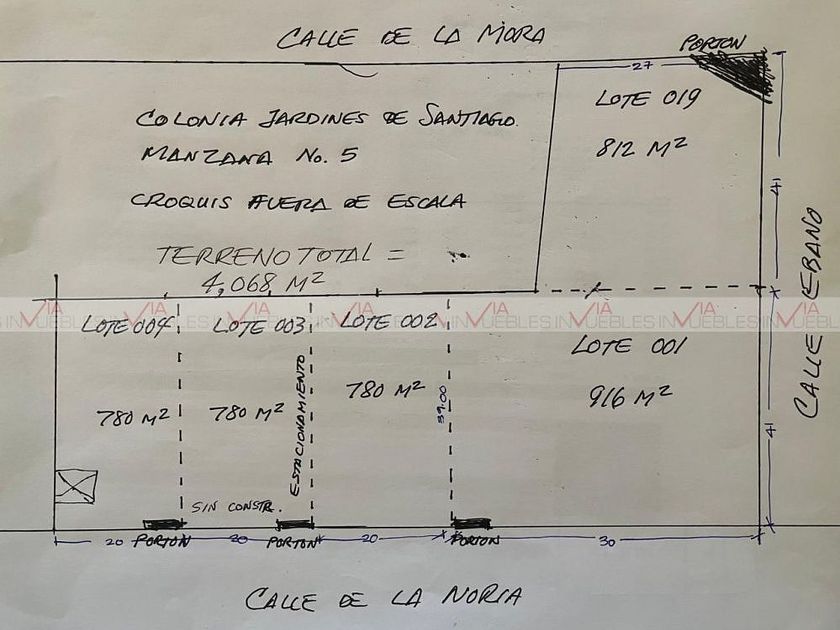 CALLE DE LA MORA
PORTON
27
LOTE 019
812 M²
41
CALLE EBANO
COLONIA JARDINES DE SANTIAGO
MANZANA No. 5
CROQUIS FUERA DE ESCALA
TERRENO TOTAL =
4,068 M²
INVIA INMUEBLES
LOTE 004
LOTE 003
LOTE 002
LOTE 001
780 M²
780 M²
780 M²
916 M²
ESTACIONAMIENTO
39.00
41
SIN CONSTR.
20
PORTON
20
PORTON
20
PORTON
30
CALLE DE LA NORIA